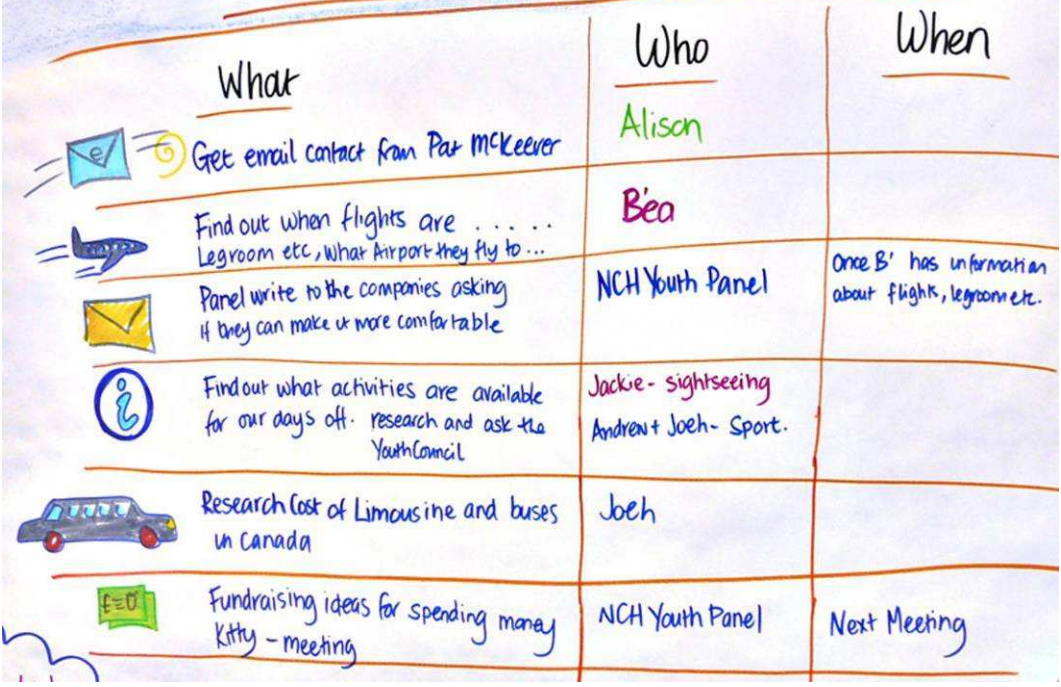 What
Who
When
e
Get email contact from Pat McKeever
Alison
Find out when flights are . . . . .
Legroom etc, What Airport they fly to ...
Béa
Panel write to the companies asking
if they can make us more comfortable
NCH Youth Panel
Once B' has information
about flights, legroom etc.
i
Find out what activities are available
for our days off. research and ask the
Youth Council
Jackie - sightseeing
Andrew + Joeh - Sport.
Research Cost of Limousine and buses
in Canada
Joeh
Fundraising ideas for spending money
Kitty - meeting
NCH Youth Panel
Next Meeting